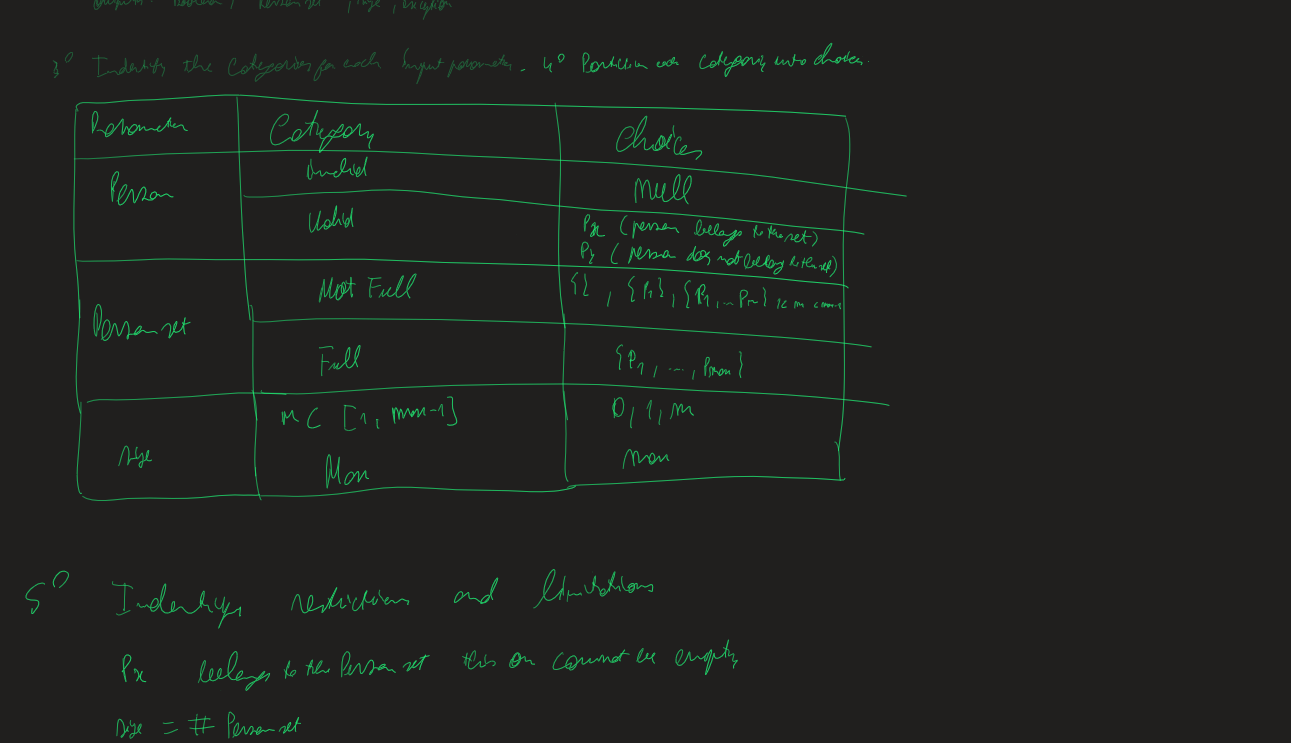 outputs: boolean, Person set, size, exception
3º Indentify the Categories for each Input parameter. 4º Partition each category into choices.
Parameter Category Choices
Person Invalid Null
Valid Px (person belongs to the set)
Py (person does not belong to the set)
Person set Not Full {}, {P1}, {P1, ... Pn}
Full {P1, ..., Pmax}
size n C [1, max-1] 0, 1, n
Max max
5º Indentify restrictions and limitations
Px belongs to the Person set this on cannot be empty
size = # Person set